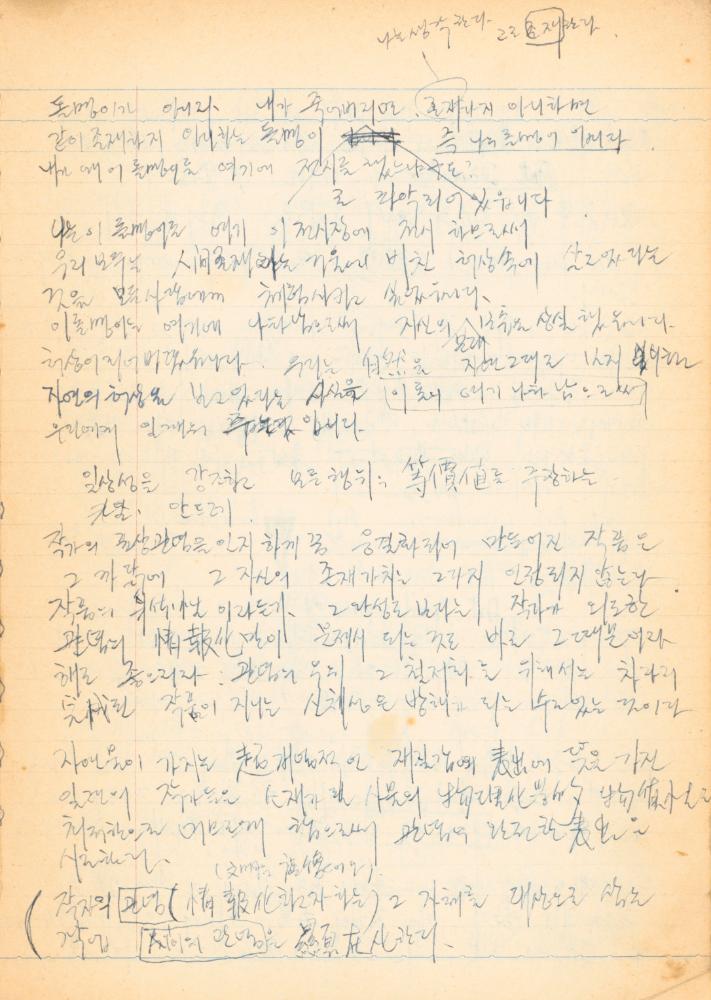 나는 생각한다. 고로 존재한다.
돌멩이가 아니라. 내가 죽어버리면 존재하지 아니하면
같이 존재하지 아니하는 돌멩이 즉 나의 돌멩이 입니다
내가 왜 이 돌멩이를 여기에 전시를 했느냐구요?
로 파악되어 있읍니다
나는 이 돌멩이를 여기 이 전시장에 전시 하므로써
우리 모두는 人間존재라는 거울에 비친 허상속에 살고있다는
것을 모든사람에게 체험시키고 싶었읍니다.
이 돌멩이는 여기에 나타남으로써 자신의 을 상실했읍니다.
허상이 되어버렸읍니다. 우리는 自然을 본대 자연그대로 보지 못하고
자연의 허상을 보고있다는 사실을 이 돌이 여기 나타남으로써
우리에게 일깨워 주는것입니다.
일상성을 강조하고 모든행위의 等價値를 주장하는
칼 안드레.
작가의 표상관념을 인지하게끔 응결화되어 만들어진 작품은
그 까닭에 그 자신의 존재가치는 그다지 인정되지 않는다
작품의 이라든가. 그 완성도 보다는 작가가 의도한
관념의 情報化만이 문제시 되는것도 바로 그 때문이라
해도 좋으리라: 관념의 우위 그 철저화를 위해서는 차라리
完成된 작품이 지니는 신체성은 방해가 되는 수도있는 것이다
자연물이 가지는 超개념적인 재질감의 表出에 뜻을 가진
일련의 작가들은 소재가 된 사물의 物理化學的 物質性을
최저한으로 머므르게 함으로써 관념의 완전한 表出을
시도한다.
작자의 관념(情報化하고자하는) 그 자체를 대상으로 삼는
작업 의 관념을 顯在化한다.